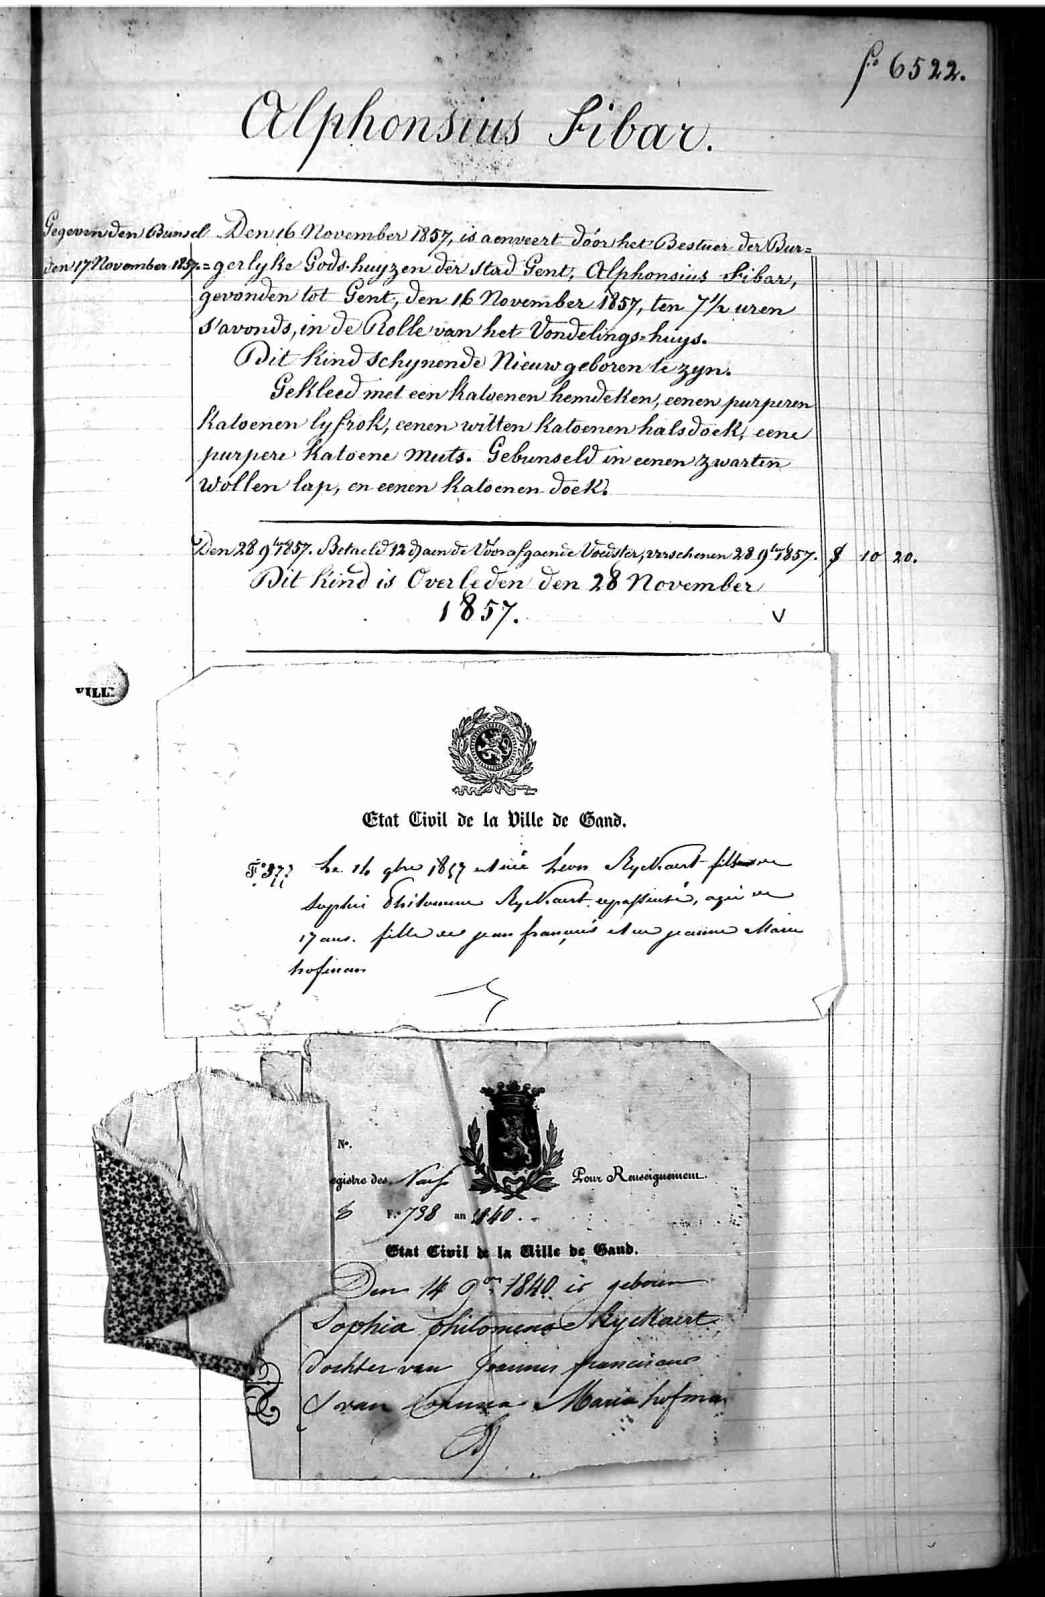 fo 6522.
Alphonsius Fibar.
Gegeven den Bunsel
den 17 November 1857.
Den 16 November 1857, is aenveert dóor het Bestuer der Bur=
=gerlyke Gods-huyzen der stad Gent, Alphonsius Fibar,
gevonden tot Gent, den 16 November 1857, ten 7 1/2 uren
s'avonds, in de Rolle van het Vondelings-huys.
Dit kind schynende Nieuw geboren te zyn.
Gekleed met een katoenen hemdeken, eenen purperen
katoenen lyfrok, eenen witten katoenen halsdoek, eene
purpere katoene muts. Gebunseld in eenen zwarten
wollen lap, en eenen katoenen doek.
Den 28 9br 1857. Betaeld 12 d) aen de Voorafgaende Voedster, verschenen 28 9br 1857. $ 10 20.
Dit kind is Overleden den 28 November
1857. V
VILLE
Etat Civil de la Ville de Gand.
Le 16 9bre 1857 est né Léon Ryckaert fils de
Sophie Philomene Ryckaert repasseuse, agée de
17 ans. fille de jean françois et de jeanne Marie
hofman
No.
egistre des Naiss Pour Renseignement.
6 Fo. 738 an 1840.
Etat Civil de la Ville de Gand.
Den 14 9ber 1840 is geboren
Sophia philomena Ryckaert,
dochter van Joannes franciscus
& van Joanna Maria hofman